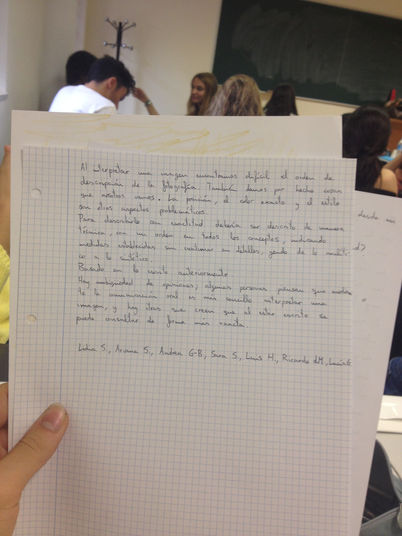 Al interpretar una imagen encontramos difícil el orden de
descripción de la fotografía. También damos por hecho cosas
que nosotros vemos. La posición, el color exacto y el estilo
son otros aspectos problemáticos.
Para describirlo con exactitud debería ser descrito de manera
técnica, con un orden en todos los conceptos, indicando
medidas establecidas sin en detalles, yendo de lo analíti-
co a lo sintético.
Basado en lo escrito anteriormente
Hay ambigüedad de opiniones; algunas personas piensan que median
te la comunicación oral es más sencillo interpretar una
imagen, y hay otras que creen que al estar escrito se
puede consultar de forma más exacta.
Lidia S., Ainara S., Andrea G-B, Sara S., Luis H., Ricardo dM, Lucía G
desde mi